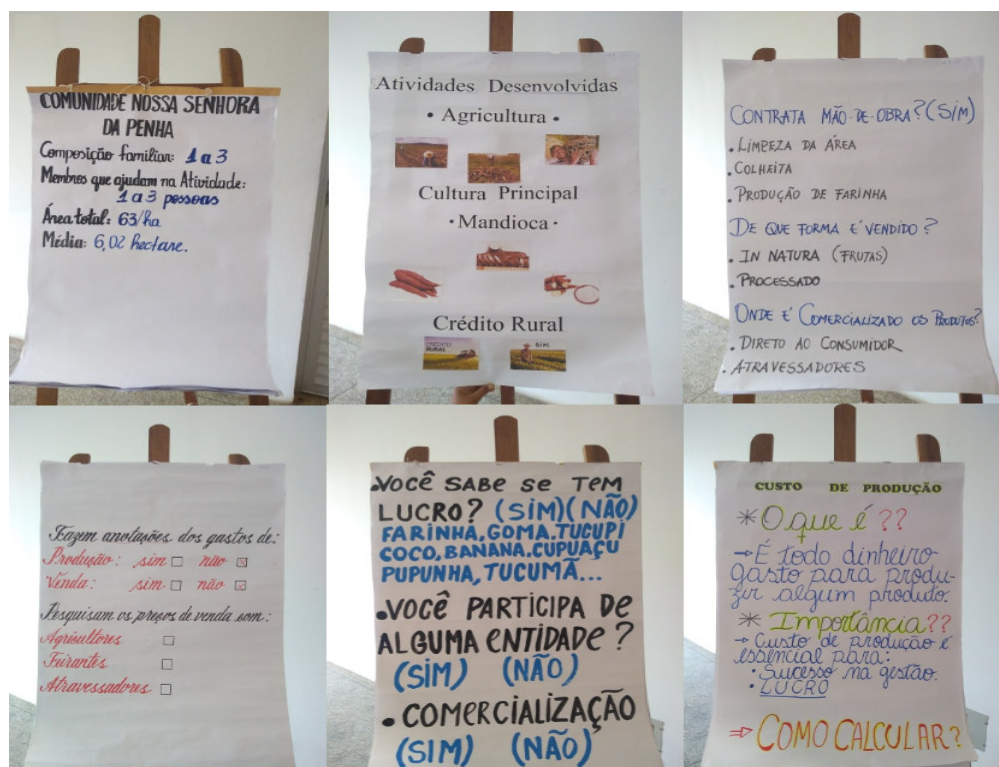 COMUNIDADE NOSSA SENHORA
DA PENHA
Composição familiar: 1 a 3
Membros que ajudam na Atividade:
1 a 3 pessoas
Área total: 63/ha
Média: 6,02 hectare.
Atividades Desenvolvidas
• Agricultura •
Cultura Principal
• Mandioca •
Crédito Rural
CRÉDITO
RURAL
SIM
CONTRATA MÃO-DE-OBRA? (SIM)
• LIMPEZA DA ÁREA
• COLHEITA
• PRODUÇÃO DE FARINHA
DE QUE FORMA É VENDIDO?
• IN NATURA (FRUTAS)
• PROCESSADO
ONDE É COMERCIALIZADO OS PRODUTOS?
• DIRETO AO CONSUMIDOR
• ATRAVESSADORES
Fazem anotações dos gastos de:
Produção: sim □ não ☒
Venda: sim □ não ☒
Pesquisam os preços de venda com:
Agricultores □
Feirantes □
Atravessadores □
•VOCÊ SABE SE TEM
LUCRO? (SIM)(NÃO)
FARINHA,GOMA.TUCUPI
COCO,BANANA.CUPUAÇU
PUPUNHA,TUCUMÃ...
•VOCÊ PARTICIPA DE
ALGUMA ENTIDADE?
(SIM) (NÃO)
• COMERCIALIZAÇÃO
(SIM) (NÃO)
CUSTO DE PRODUÇÃO
* O que é ??
→ É todo dinheiro
gasto para produ-
zir algum produto.
* Importância??
→ Custo de produção é
essencial para:
• Sucesso na gestão.
• LUCRO
⇒ COMO CALCULAR?